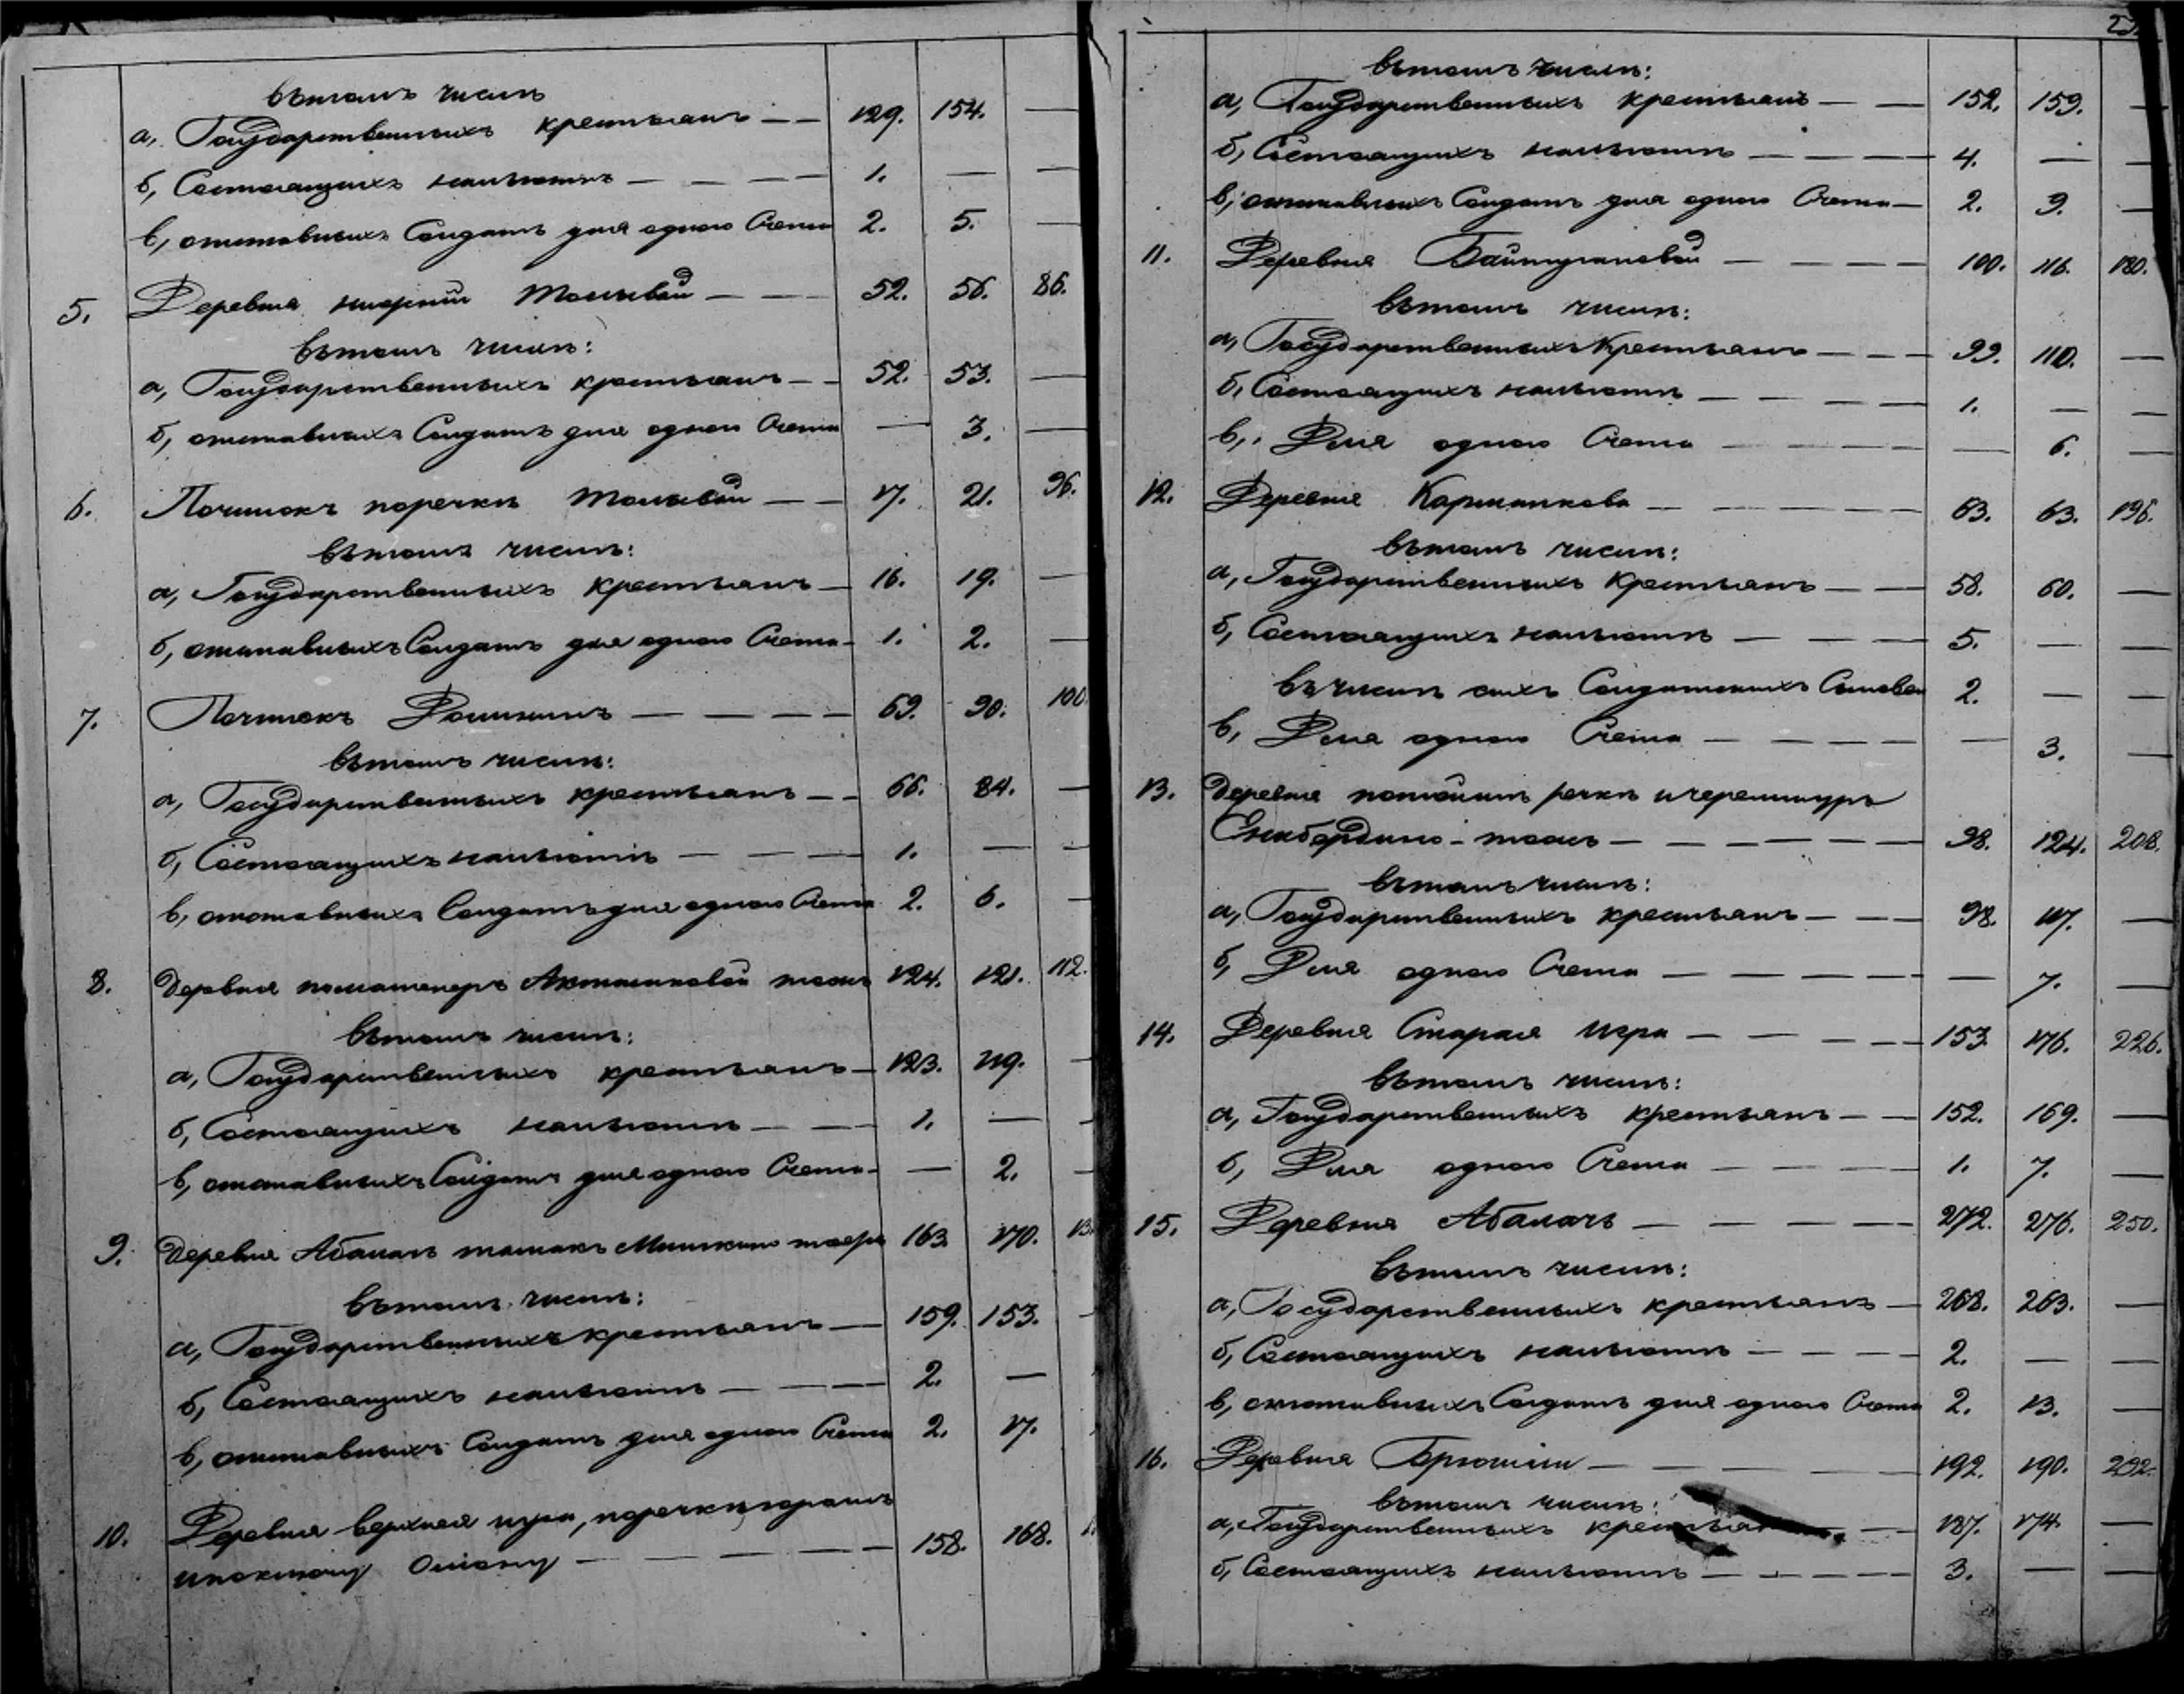 въ томъ числѣ
а, Государственныхъ крестьянъ — — 129. 154. —
б, Состоящихъ на льготѣ — — — — 1. — —
в, отставныхъ Солдатъ для одного Счета 2. 5. —
5. Деревня нижнiй — — 52. 56. 86.
въ томъ числѣ:
а, Государственныхъ крестьянъ — — 52. 53. —
б, отставныхъ Солдатъ для одного Счета — 3. —
6. Починокъ по речкѣ — — 17. 21. 96.
въ томъ числѣ:
а, Государственныхъ крестьянъ — 16. 19. —
б, отставныхъ Солдатъ для одного Счета — 1. 2. —
7. Починокъ — — — — 69. 90. 100
въ томъ числѣ:
а, Государственныхъ крестьянъ — — 66. 84. —
б, Состоящихъ на льготѣ — — — 1. — —
в, отставныхъ Солдатъ для одного Счета 2. 6. —
8. Деревня тожъ 124. 121. 112.
въ томъ числѣ:
а, Государственныхъ крестьянъ — 123. 119. —
б, Состоящихъ на льготѣ — — 1. — —
в, отставныхъ Солдатъ для одного Счета — — 2. —
9. Деревня 163. 170.
въ томъ числѣ:
а, Государственныхъ крестьянъ — 159. 153. —
б, Состоящихъ на льготѣ — — — 2. —
в, отставныхъ Солдатъ для одного Счета 2. 17.
10. Деревня верхняя игра, по речкѣ
— — — — — 158. 168.
въ томъ числѣ:
а, Государственныхъ крестьянъ — — 152. 159. —
б, Состоящихъ на льготѣ — — — — 4. — —
в, отставныхъ Солдатъ для одного Счета — 2. 9. —
11. Деревня Байтугановой — — — — 100. 116. 180.
въ томъ числѣ:
а, Государственныхъ Крестьянъ — — — 99. 110. —
б, Состоящихъ на льготѣ — — — — 1. — —
в, Для одного Счета — — — — 6. —
12. Деревня Карманкова — — — — — 63. 63. 196.
въ томъ числѣ:
а, Государственныхъ Крестьянъ — — 58. 60. —
б, Состоящихъ на льготѣ — — — 5. — —
въ числѣ сихъ Солдатскихъ Сыновей 2. — —
в, Для одного Счета — — — — — 3. —
13. Деревня речкѣ
тожъ — — — — — 98. 124. 208.
въ томъ числѣ:
а, Государственныхъ крестьянъ — — — 98. 117. —
б, Для одного Счета — — — — — — 7. —
14. Деревня Старая Игра — — — — 153. 176. 226.
въ томъ числѣ:
а, Государственныхъ Крестьянъ — — 152. 169. —
б, Для одного Счета — — — — 1. 7. —
15. Деревня Абалачь — — — — 272. 276. 250.
въ томъ числѣ:
а, Государственныхъ крестьянъ — 268. 263. —
б, Состоящихъ на льготѣ — — — — 2. — —
в, отставныхъ Солдатъ для одного Счета 2. 13. —
16. Деревня — — — — 192. 190. 292.
въ томъ числѣ:
а, Государственныхъ крестьянъ — 187. 174. —
б, Состоящихъ на льготѣ — — — — — 3. — —